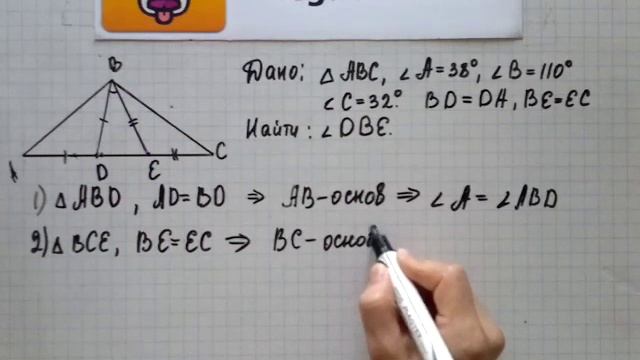 B
A
D
E
C
Дано: △ABC, ∠A=38°, ∠B=110°
∠C=32° BD=DA, BE=EC
Найти: ∠DBE.
1) △ABD, AD=BD ⇒ AB-основ ⇒ ∠A=∠ABD
2) △BCE, BE=EC ⇒ BC-основ